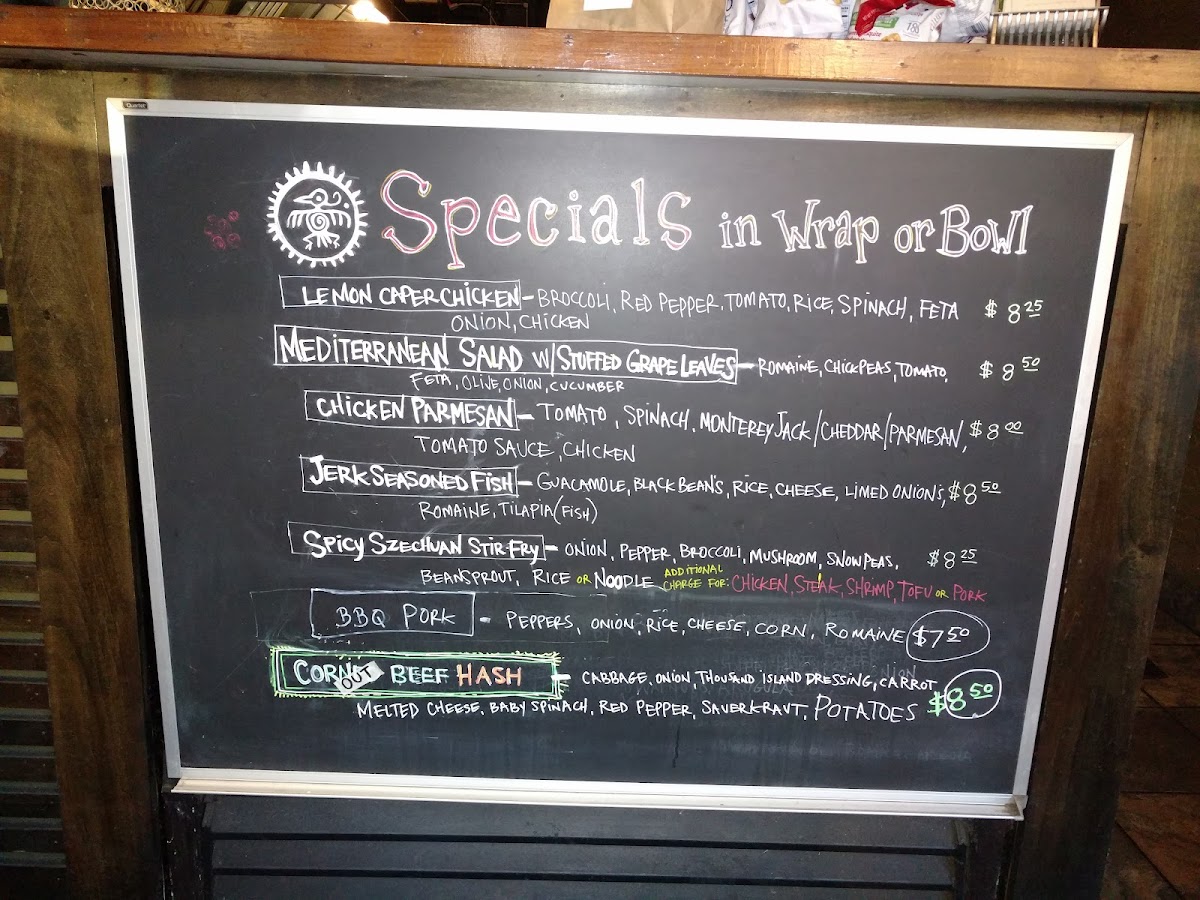 Quartet
Specials in Wrap or Bowl
LEMON CAPER CHICKEN - BROCCOLI, RED PEPPER, TOMATO, RICE, SPINACH, FETA $8.25
ONION, CHICKEN
MEDITERRANEAN SALAD W/STUFFED GRAPE LEAVES - ROMAINE, CHICKPEAS, TOMATO, $8.50
FETA, OLIVE, ONION, CUCUMBER
CHICKEN PARMESAN - TOMATO, SPINACH, MONTEREY JACK/CHEDDAR/PARMESAN, $8.00
TOMATO SAUCE, CHICKEN
JERK SEASONED FISH - GUACAMOLE, BLACK BEAN'S, RICE, CHEESE, LIMED ONION'S, $8.50
ROMAINE, TILAPIA (FISH)
SPICY SZECHUAN STIR-FRY - ONION, PEPPER, BROCCOLI, MUSHROOM, SNOWPEAS, $8.25
BEANSPROUT, RICE OR NOODLE ADDITIONAL CHARGE FOR: CHICKEN, STEAK, SHRIMP, TOFU OR PORK
BBQ PORK - PEPPERS, ONION, RICE, CHEESE, CORN, ROMAINE $7.50
CORN OUT BEEF HASH - CABBAGE, ONION, THOUSAND ISLAND DRESSING, CARROT
MELTED CHEESE, BABY SPINACH, RED PEPPER, SAUERKRAUT, POTATOES $8.50